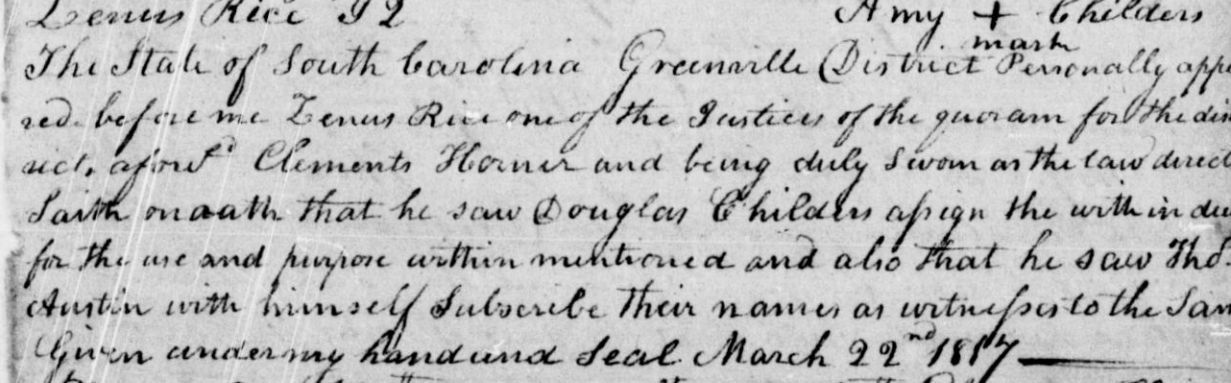 Zenus Rice J Q Amy + Childers
mark
The State of South Carolina Greenville District Personally appe
red before me Zenus Rice one of the Justices of the quoram for the dis
rict, afores'd Clements Horner and being duly Sworn as the law direct
Saith on oath that he saw Douglas Childers assign the with in dee
for the use and purpose within mentioned and also that he saw Tho.
Austin with himself Subscribe their names as witnesses to the Sam
Given under my hand and Seal March 22nd 1817